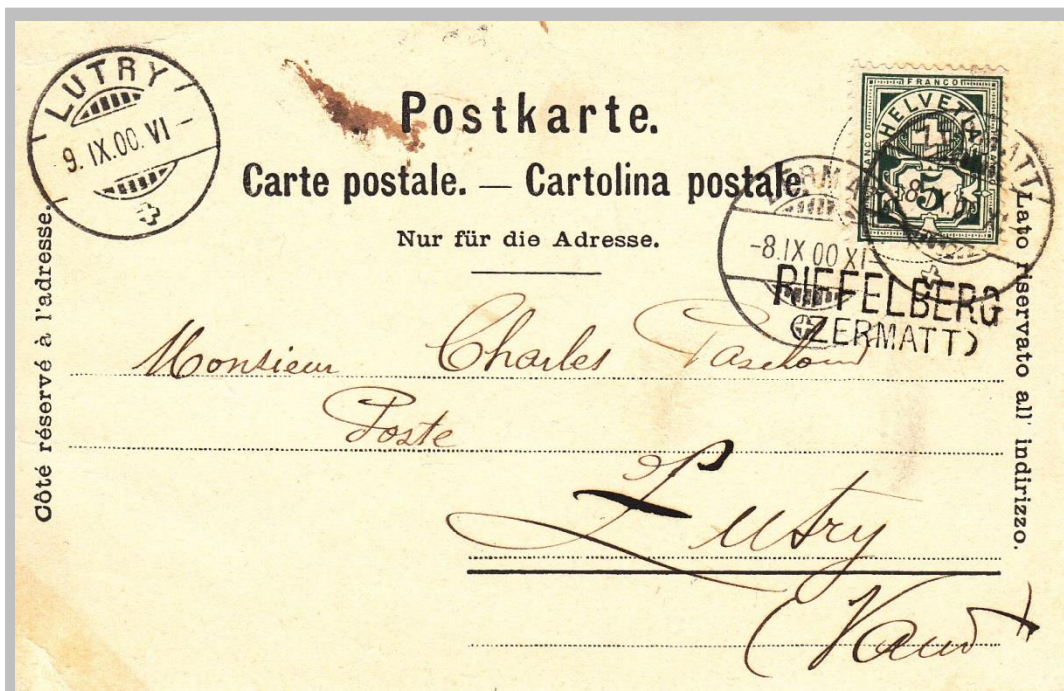 LUTRY
9. IX.00. VI -
Postkarte.
Carte postale. — Cartolina postale.
Nur für die Adresse.
FRANCO
HELVETIA
FRANCO
5
ZERMATT
-8.IX 00 XI-
RIFFELBERG
(ZERMATT)
Côté réservé à l'adresse.
Lato riservato all' indirizzo.
Monsieur Charles
Poste
Lutry
(Vaud)